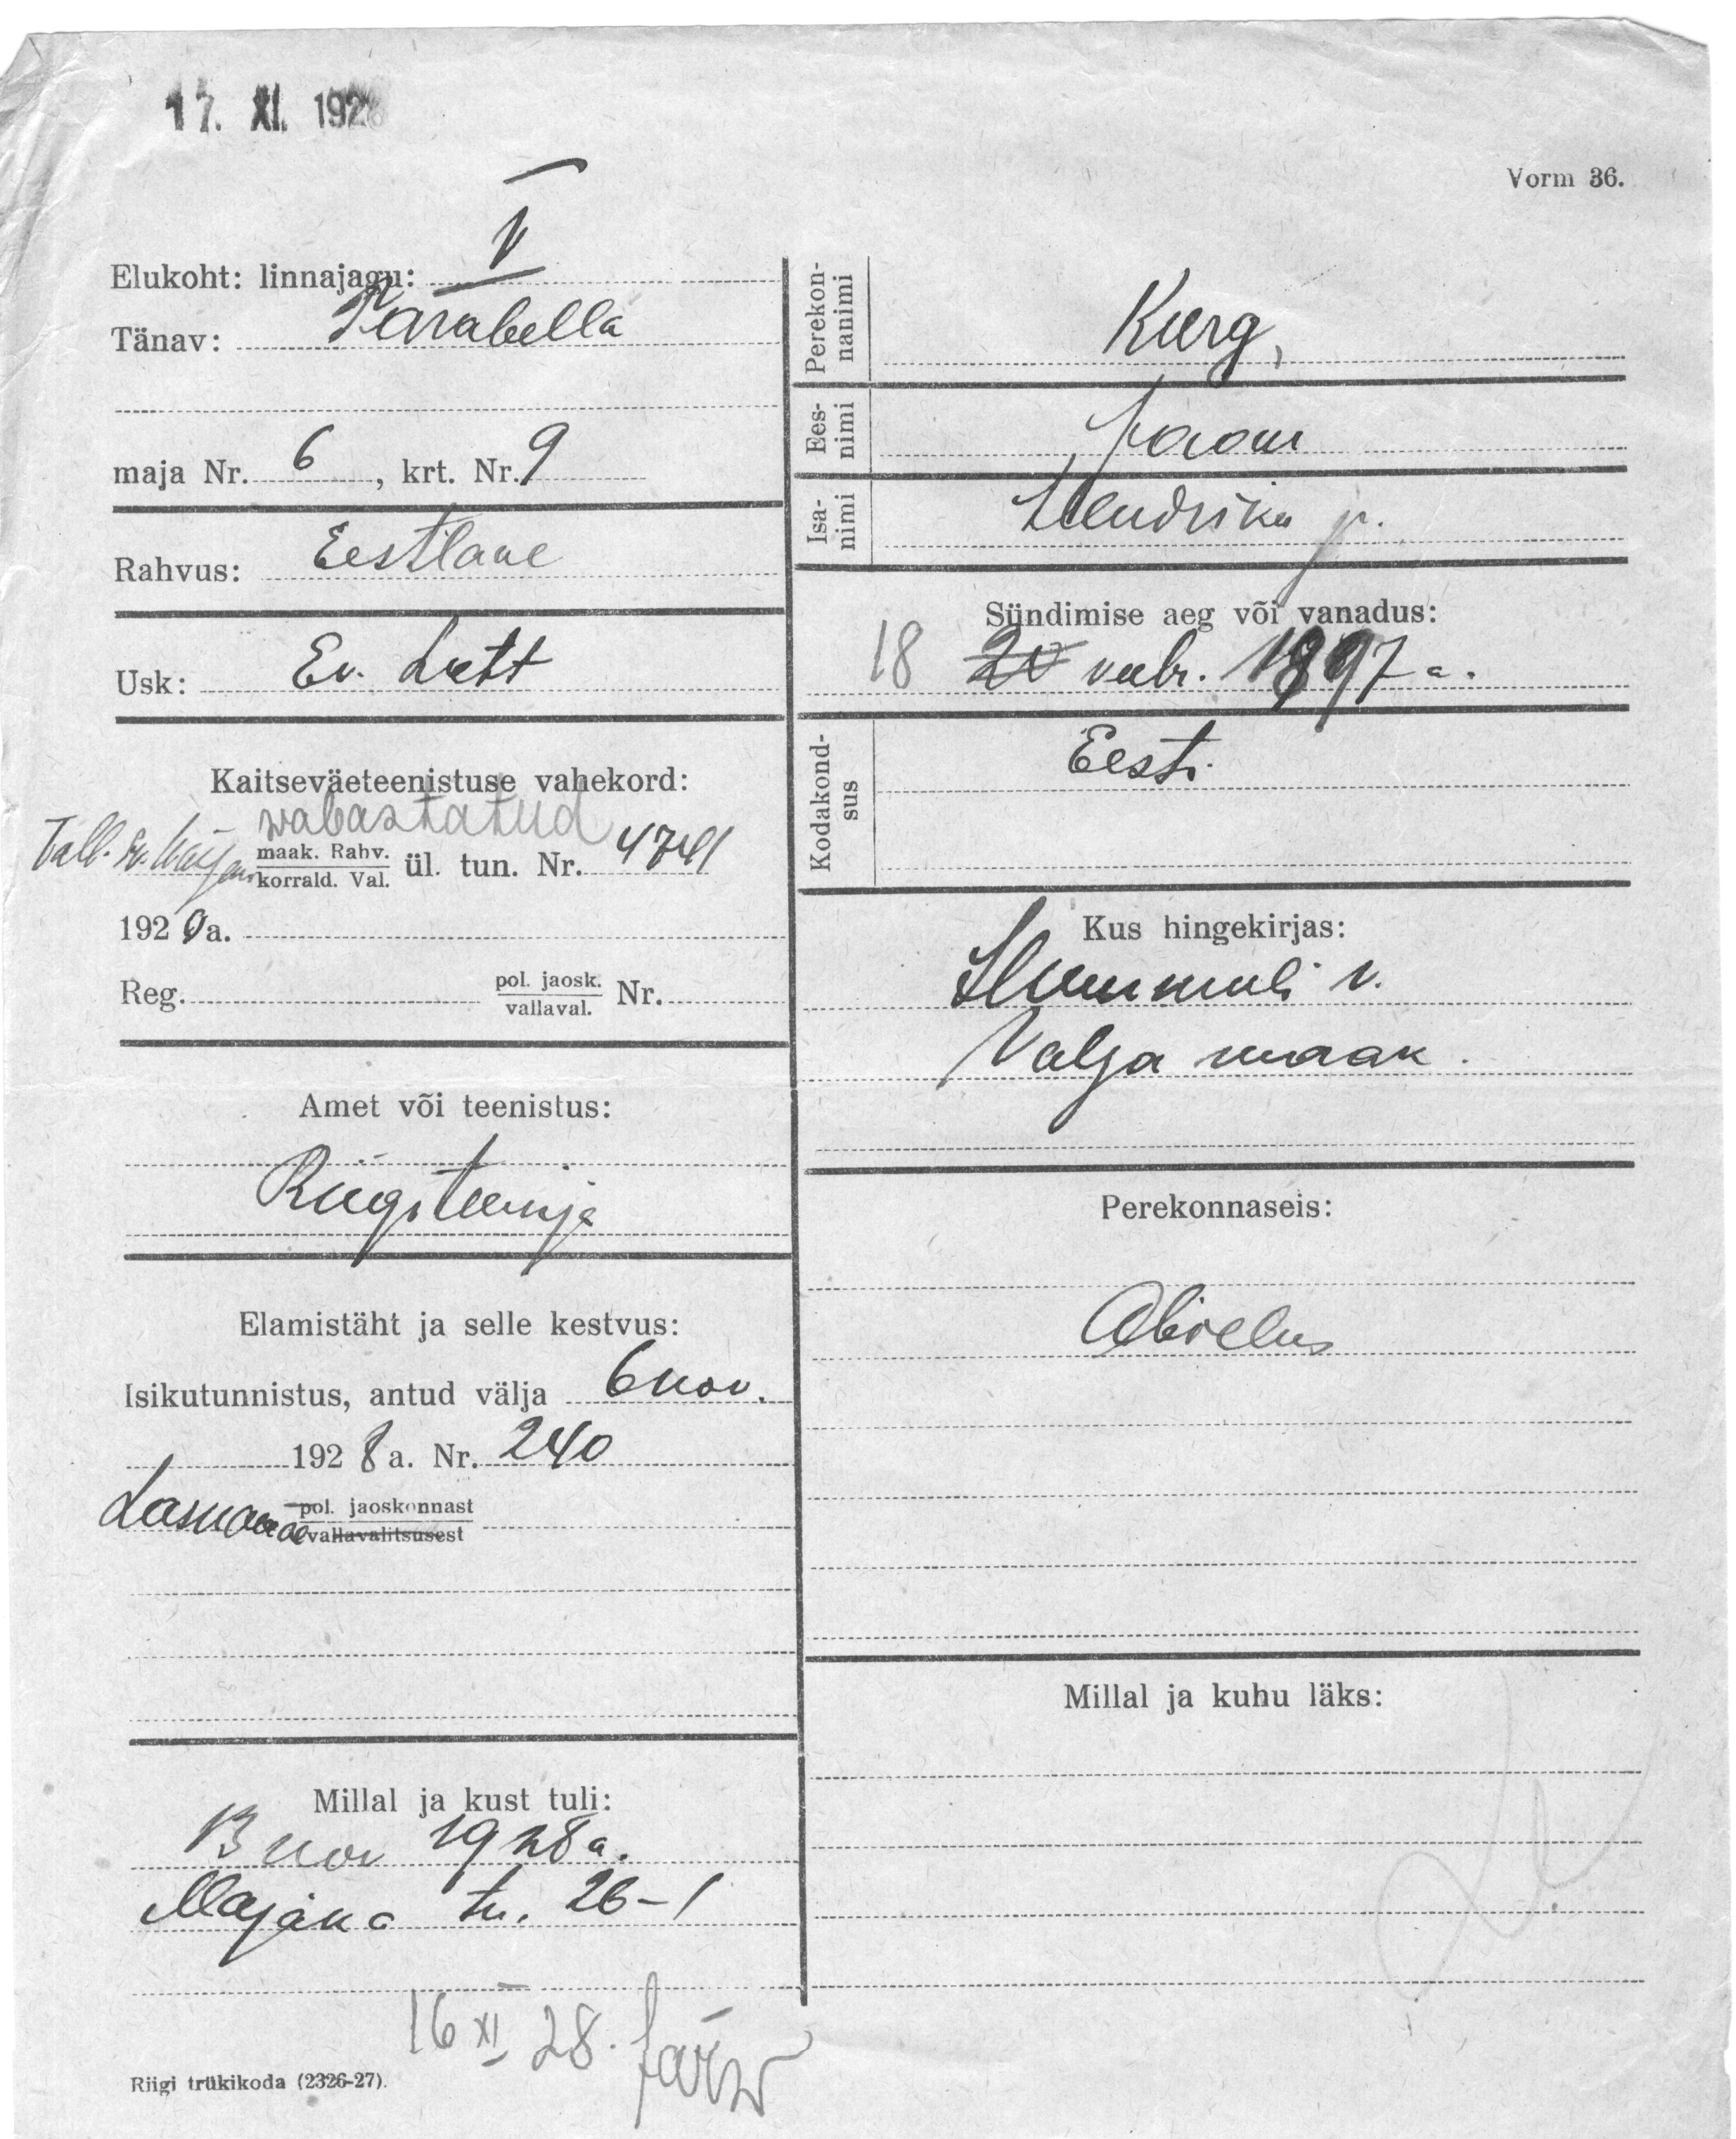 17. XI. 1928
Vorm 36.
Elukoht: linnajagu: V
Tänav: Parabella
maja Nr. 6, krt. Nr. 9
Rahvus: Eestlane
Usk: Ev. Lutt
Kaitseväeteenistuse vahekord:
wabastatud
Tall. maak. Rahv.
korrald. Val. ül. tun. Nr. 4741
1920a.
Reg. pol. jaosk.
vallaval. Nr.
Amet või teenistus:
Riigiteenija
Elamistäht ja selle kestvus:
Isikutunnistus, antud välja 6 nov.
1928 a. Nr. 240
Lasnamäe pol. jaoskonnast
vallavalitsusest
Millal ja kust tuli:
13 nov 1928 a.
Majaka tn. 26-1
16 XI 28. Järw
Riigi trükikoda (2326-27).
Perekon-
nanimi
Kurg,
Ees-
nimi
Jaan
Isa-
nimi
Hendriku p.
Sündimise aeg või vanadus:
18 20 veebr. 1897 a.
Kodakond-
sus
Eesti
Kus hingekirjas:
Hummuli v.
Valga maak.
Perekonnaseis:
Abielus
Millal ja kuhu läks: